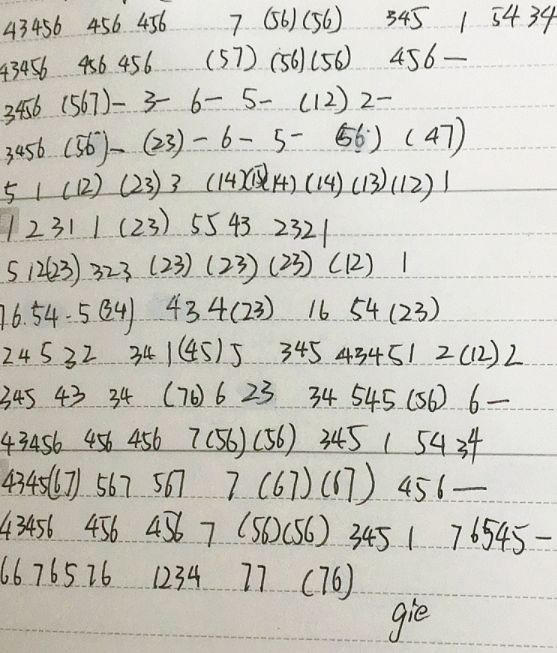 43456 456 456 7 (56)(56) 345 1 5434
43456 456 456 (57) (56)(56) 456—
3456 (567)- 3- 6- 5- (12) 2-
3456 (56)- (23)- 6- 5- (56) (47)
5 1 (12) (23) 3 (14) (14) (14) (13) (12) 1
1 2 3 1 1 (23) 55 43 2321
5 12(23) 323 (23) (23) (23) (12) 1
76.54-5(34) 434(23) 16 54 (23)
24532 34 1(45)5 345 43451 2(12)2
345 43 34 (76) 6 23 34 545 (56) 6—
43456 456 456 7(56)(56) 345 1 54 34
4345(67) 567 567 7 (67)(67) 456—
43456 456 456 7 (56)(56) 345 1 76545-
6676576 1234 77 (76)
gie